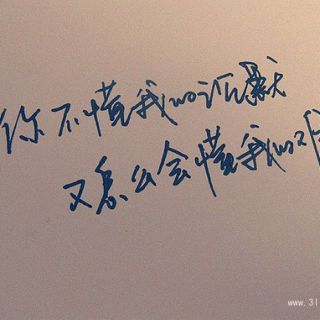 你不懂我的沉默
又怎么会懂我的
www.3l